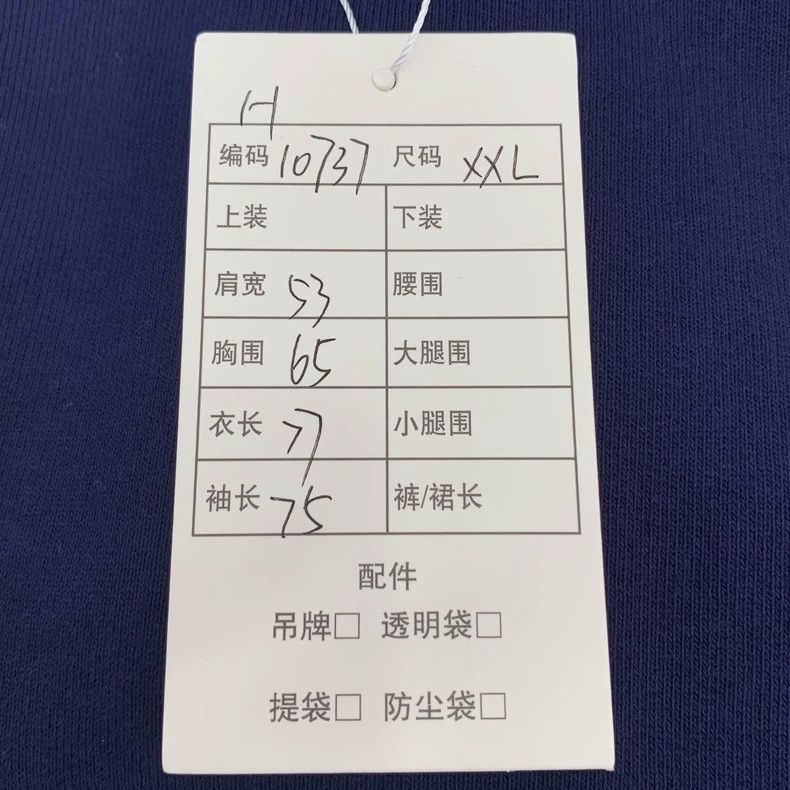 H
编码 10737 尺码 XXL
上装 下装
肩宽 53 腰围
胸围 65 大腿围
衣长 77 小腿围
袖长 75 裤/裙长
配件
吊牌□ 透明袋□
提袋□ 防尘袋□